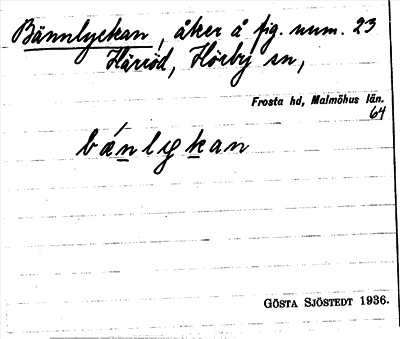 Bännlyckan, åker å fig. num. 23
Häröd, Hörby sn,
Frosta hd, Malmöhus län.
64
bä́nlykan
GÖSTA SJÖSTEDT 1936.